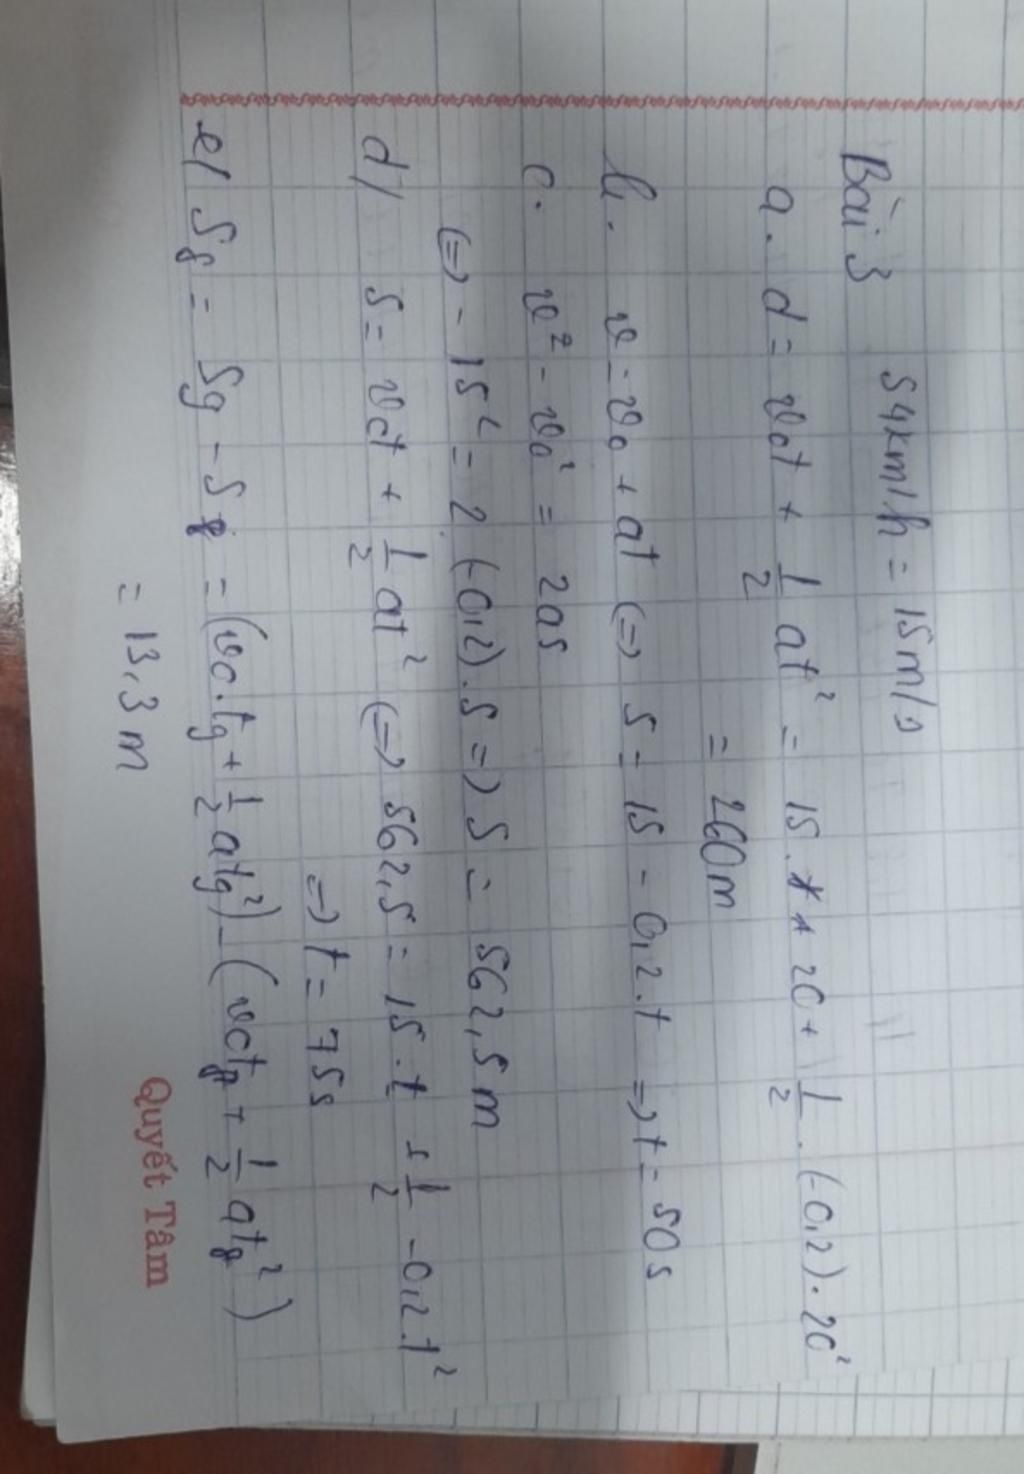 Bài 3 54km/h = 15m/s
a. d = v₀t + 1/2 at² = 15 . 20 + 1/2 . (-0,2) . 20²
= 260m
b. v = v₀ + at (=) 5 = 15 - 0,2.t =) t = 50s
c. v² - v₀² = 2as
(=) - 15² = 2 (-0,2).s =) s = 562,5m
d/ s = v₀t + 1/2 at² (=) 562,5 = 15.t + 1/2 -0,2.t²
=) t = 75s
e/ S₈ = S₉ - S₈ = (v₀.t₉ + 1/2 at₉²) - (v₀t₈ + 1/2 at₈²)
= 13,3m
Quyết Tâm